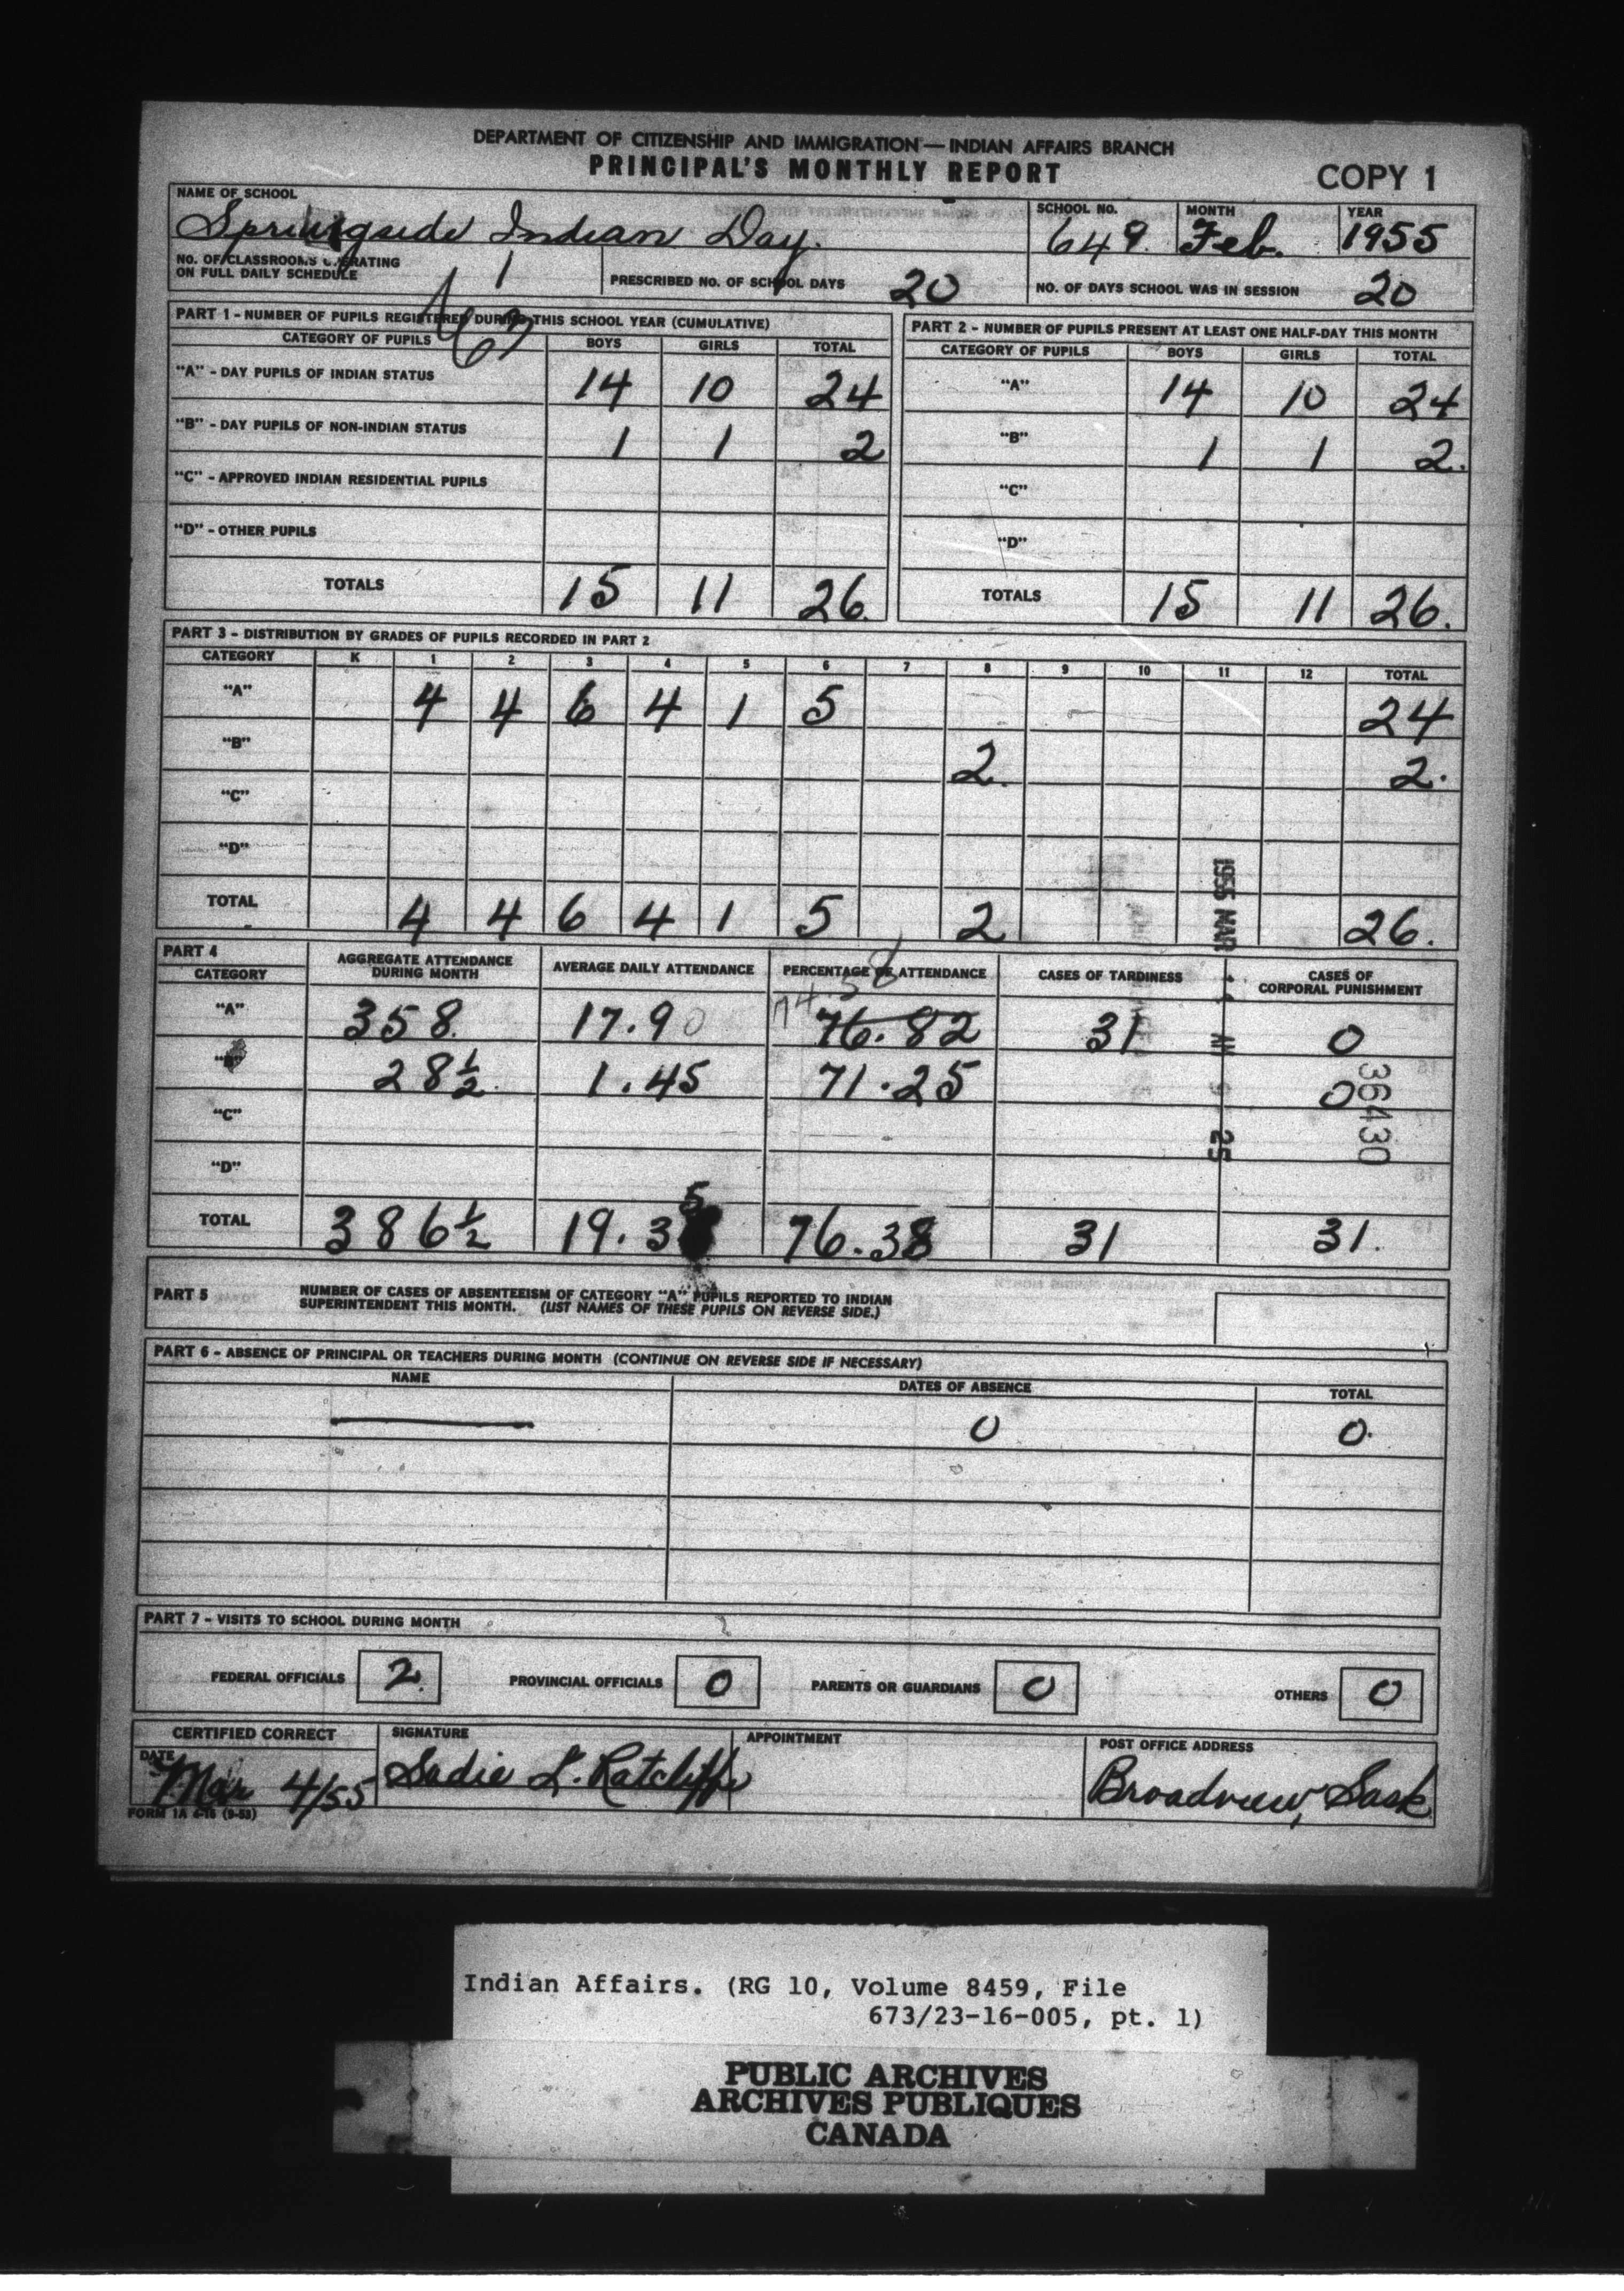 DEPARTMENT OF CITIZENSHIP AND IMMIGRATION — INDIAN AFFAIRS BRANCH
PRINCIPAL'S MONTHLY REPORT
COPY 1
NAME OF SCHOOL
Springside Indian Day.
SCHOOL NO.
649.
MONTH
Feb.
YEAR
1955
NO. OF CLASSROOMS OPERATING
ON FULL DAILY SCHEDULE
1
PRESCRIBED NO. OF SCHOOL DAYS 20
NO. OF DAYS SCHOOL WAS IN SESSION 20
PART 1 - NUMBER OF PUPILS REGISTERED DURING THIS SCHOOL YEAR (CUMULATIVE)
CATEGORY OF PUPILS BOYS GIRLS TOTAL
"A" - DAY PUPILS OF INDIAN STATUS 14 10 24
"B" - DAY PUPILS OF NON-INDIAN STATUS 1 1 2
"C" - APPROVED INDIAN RESIDENTIAL PUPILS
"D" - OTHER PUPILS
TOTALS 15 11 26.
PART 2 - NUMBER OF PUPILS PRESENT AT LEAST ONE HALF-DAY THIS MONTH
CATEGORY OF PUPILS BOYS GIRLS TOTAL
"A" 14 10 24
"B" 1 1 2.
"C"
"D"
TOTALS 15 11 26.
PART 3 - DISTRIBUTION BY GRADES OF PUPILS RECORDED IN PART 2
CATEGORY K 1 2 3 4 5 6 7 8 9 10 11 12 TOTAL
"A" 4 4 6 4 1 5 24
"B" 2. 2.
"C"
"D"
TOTAL 4 4 6 4 1 5 2 26.
PART 4
CATEGORY
AGGREGATE ATTENDANCE
DURING MONTH
AVERAGE DAILY ATTENDANCE
PERCENTAGE OF ATTENDANCE
CASES OF TARDINESS
CASES OF
CORPORAL PUNISHMENT
74.58
"A" 358. 17.90 76.82 31 0
"B" 28½. 1.45 71.25 0
"C"
"D"
5
TOTAL 386½ 19.38 76.38 31 31.
1955 MAR
AM 9 25
36430
PART 5
NUMBER OF CASES OF ABSENTEEISM OF CATEGORY "A" PUPILS REPORTED TO INDIAN
SUPERINTENDENT THIS MONTH. (LIST NAMES OF THESE PUPILS ON REVERSE SIDE.)
PART 6 - ABSENCE OF PRINCIPAL OR TEACHERS DURING MONTH (CONTINUE ON REVERSE SIDE IF NECESSARY)
NAME DATES OF ABSENCE TOTAL
0 0.
PART 7 - VISITS TO SCHOOL DURING MONTH
FEDERAL OFFICIALS 2. PROVINCIAL OFFICIALS 0 PARENTS OR GUARDIANS 0 OTHERS 0
CERTIFIED CORRECT
DATE
Mar 4/55
SIGNATURE
Sadie L. Ratcliffe
APPOINTMENT
POST OFFICE ADDRESS
Broadview, Sask.
FORM 1A 4-16 (9-53)
Indian Affairs. (RG 10, Volume 8459, File
673/23-16-005, pt. 1)
PUBLIC ARCHIVES
ARCHIVES PUBLIQUES
CANADA